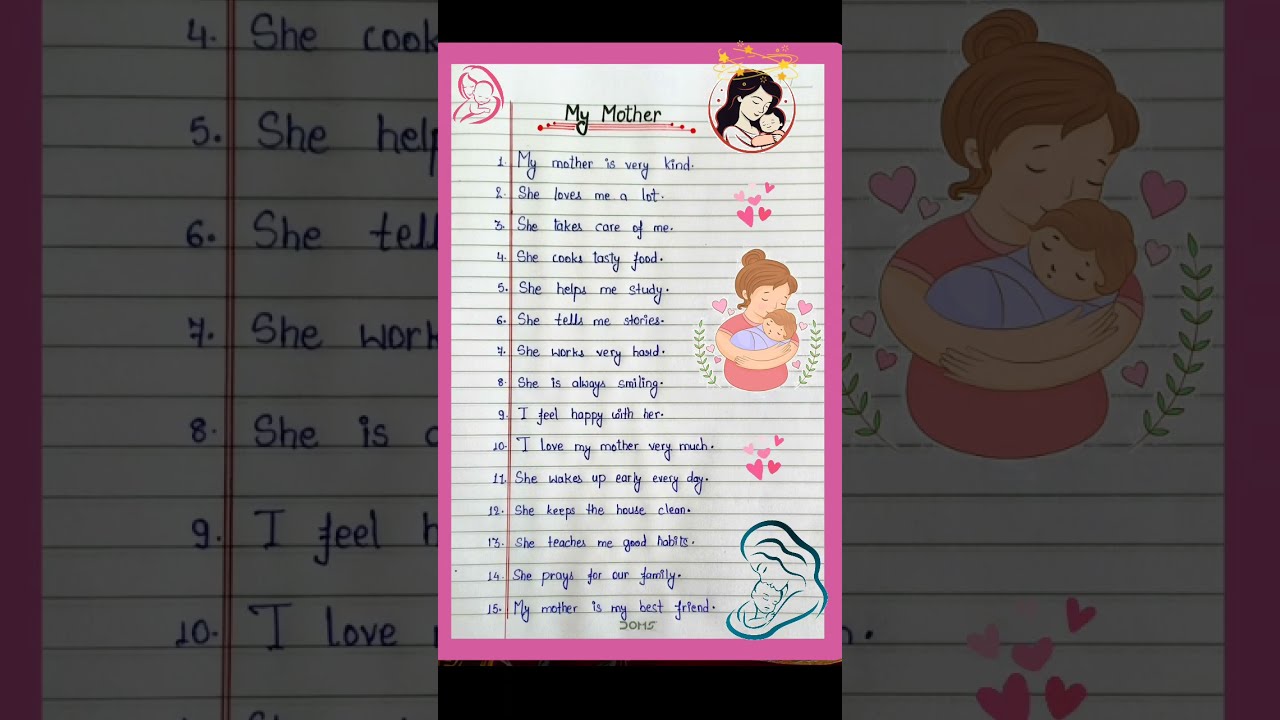 My Mother
1. My mother is very kind.
2. She loves me a lot.
3. She takes care of me.
4. She cooks tasty food.
5. She helps me study.
6. She tells me stories.
7. She works very hard.
8. She is always smiling.
9. I feel happy with her.
10. I love my mother very much.
11. She wakes up early every day.
12. She keeps the house clean.
13. She teaches me good habits.
14. She prays for our family.
15. My mother is my best friend.
DOMS
4. She cook
5. She help
6. She tell
7. She work
8. She is
9. I feel
10. I love